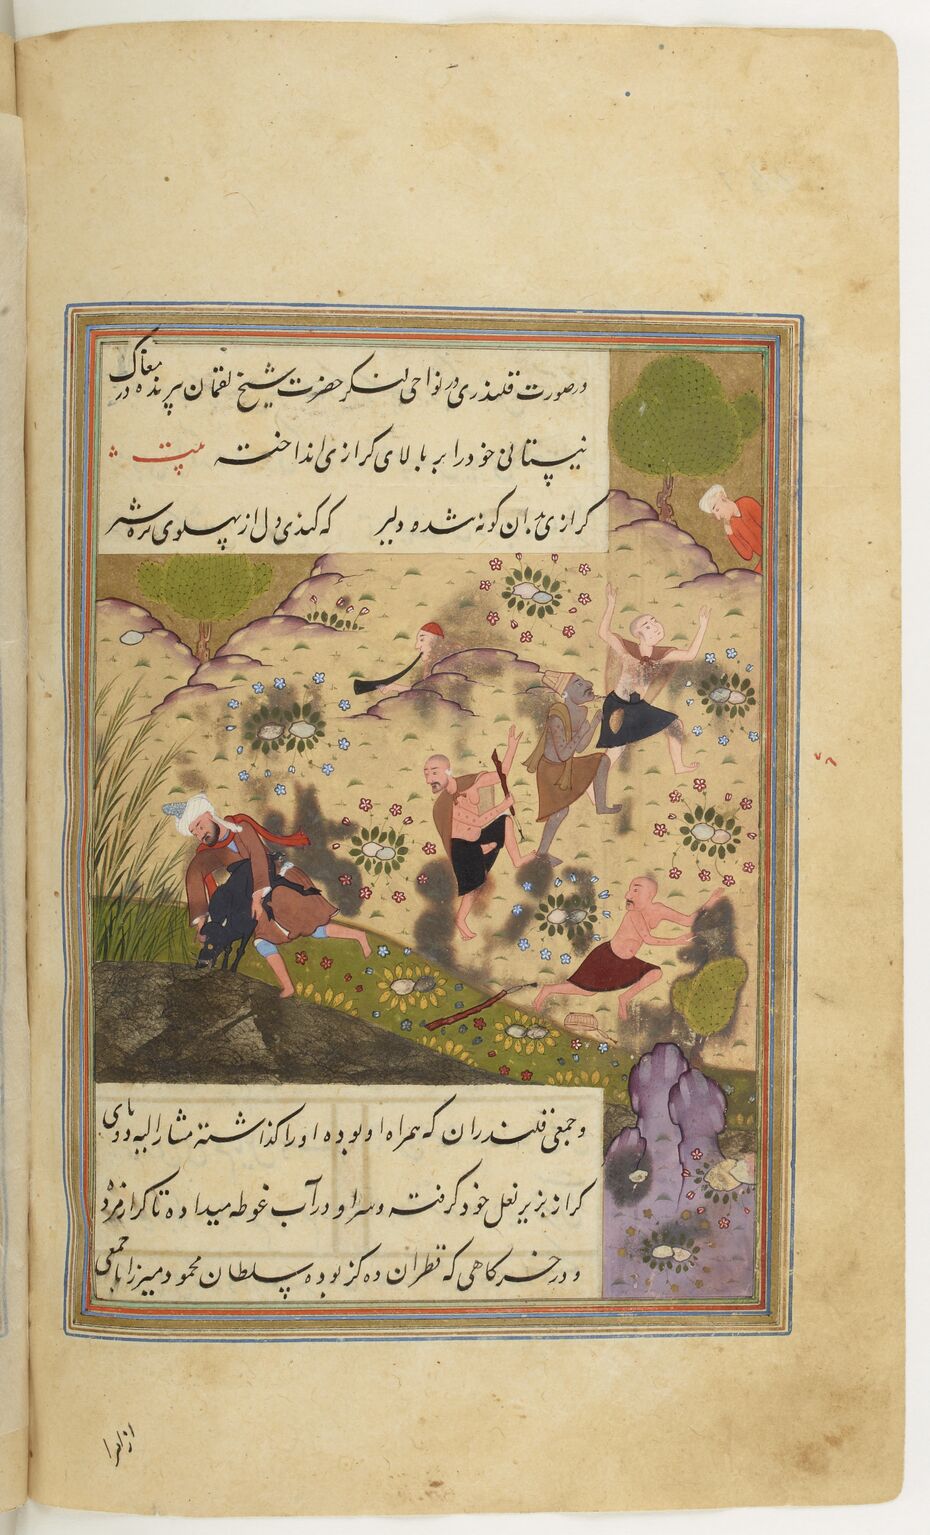 در صورت قلندری در نواحی لنکر حضرت شیخ لقمان پرنده در مغاک
نیستانی خود را بر بالای کرازی انداخته بیت
کرازی بدان کونه شده دلیر که کندی دل از پهلوی نره شیر
و جمعی قلندران که همراه او بوده او را کذاشته مشار الیه دو پای
کراز بزیر بغل خود کرفته و سر او در آب غوطه میداده تا کراز مرده
و در خرکاهی که قطران ده کز بوده سلطان محمود میرزا با جمعی